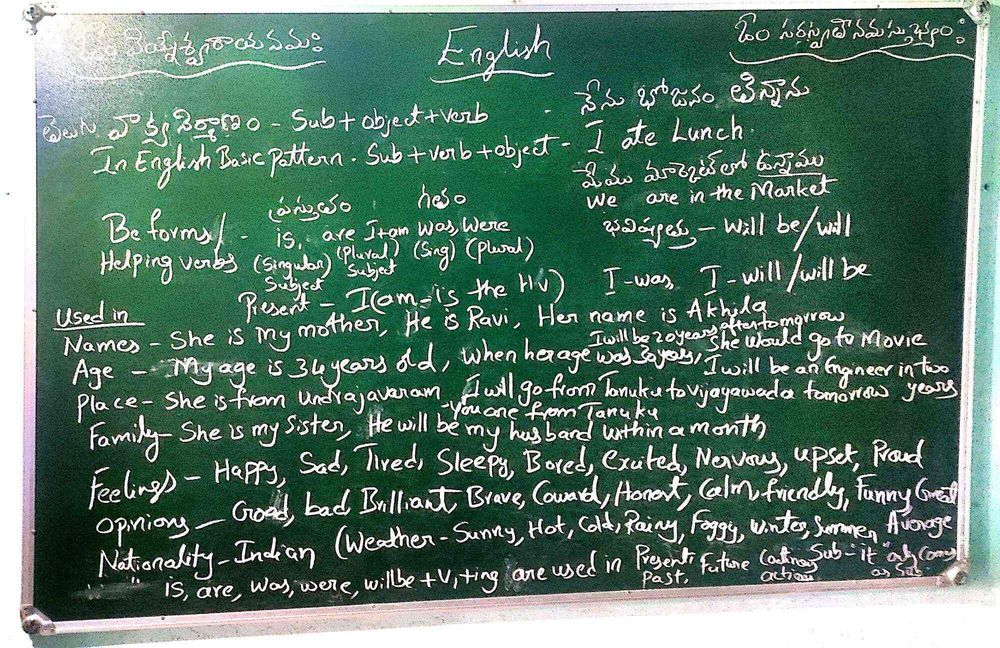 ఓం విఘ్నేశ్వరాయ నమః
English
ఓం సరస్వతీ నమస్తుభ్యం :
తెలుగు వాక్య నిర్మాణం - Sub + object + verb - నేను భోజనం తిన్నాను
In English Basic pattern - Sub + verb + object - I ate Lunch.
మేము మార్కెట్ లో ఉన్నాము
We are in the Market
ప్రస్తుతం గతం
Be forms/ - is, are I + am was, were భవిష్యత్తు - Will be/will
Helping verbs (Singular) Subject (Plural) Subject (Sing) (Plural)
I - was I - will/will be
Present - I (am - is the HV)
Used in
Names - She is my mother, He is Ravi, Her name is Akhila
I will be 20 years after tomorrow
Age - My age is 34 years old, when her age was 30 years, She would go to Movie
I will be an Engineer in two years
Place - She is from Undrajavaram, I will go from Tanuku to vijayawada tomorrow
- you are from Tanuku
Family - She is my Sister, He will be my husband within a month,
Feelings - Happy, Sad, Tired, Sleepy, Bored, Excited, Nervous, upset, Proud
Opinions - Good, bad, Brilliant, Brave, Coward, Honest, Calm, friendly, Funny, Great
Nationality - Indian (Weather - Sunny, Hot, Cold, Rainy, Foggy, Winter, Summer, Average
Sub - "it" only comes as Sub
is, are, was, were, will be + V1 + ing are used in Present, Past, Future actions